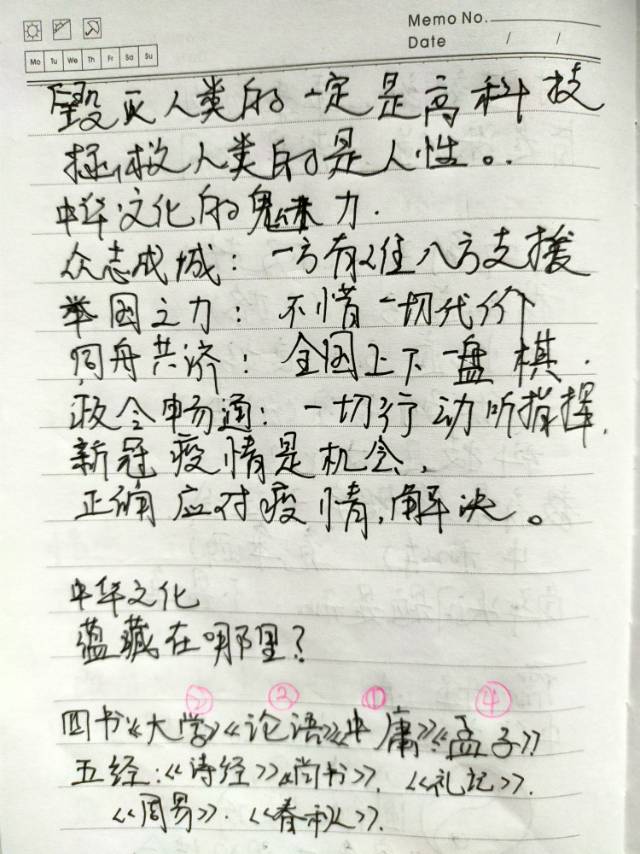 Memo No.
Date / /
Mo Tu We Th Fr Sa Su
毁灭人类的一定是高科技
拯救人类的是人性。
中华文化的魅力.
众志成城：一方有难八方支援
举国之力：不惜一切代价
同舟共济：全国上下一盘棋.
政令畅通：一切行动听指挥.
新冠疫情是机会,
正确应对疫情,解决。
中华文化
蕴藏在哪里？
② ③ ① ④
四书《大学》《论语》《中庸》《孟子》
五经:《诗经》《尚书》.《礼记》.
《周易》.《春秋》.